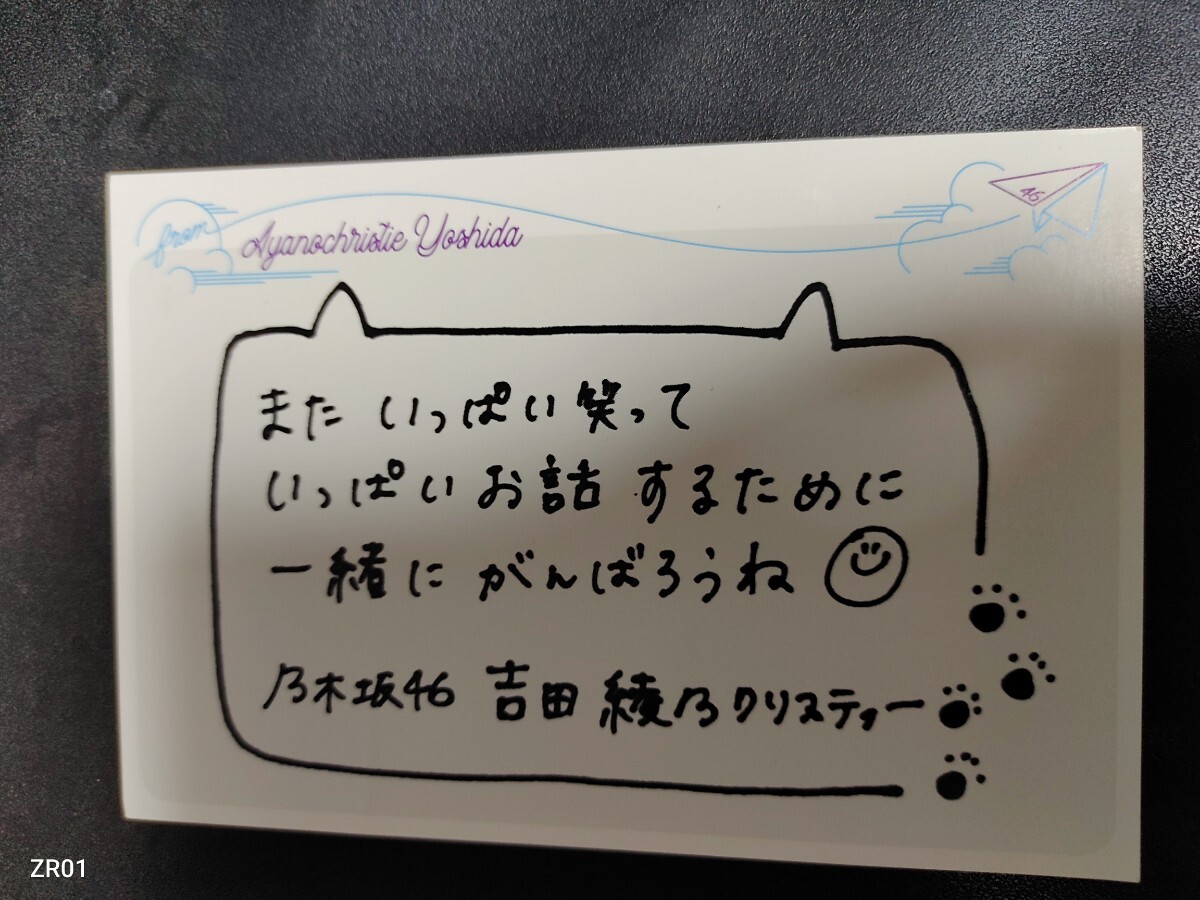 from Ayanochristie Yoshida
46
また いっぱい笑って
いっぱいお話するために
一緒にがんばろうね
乃木坂46 吉田 綾乃クリスティー
ZR01